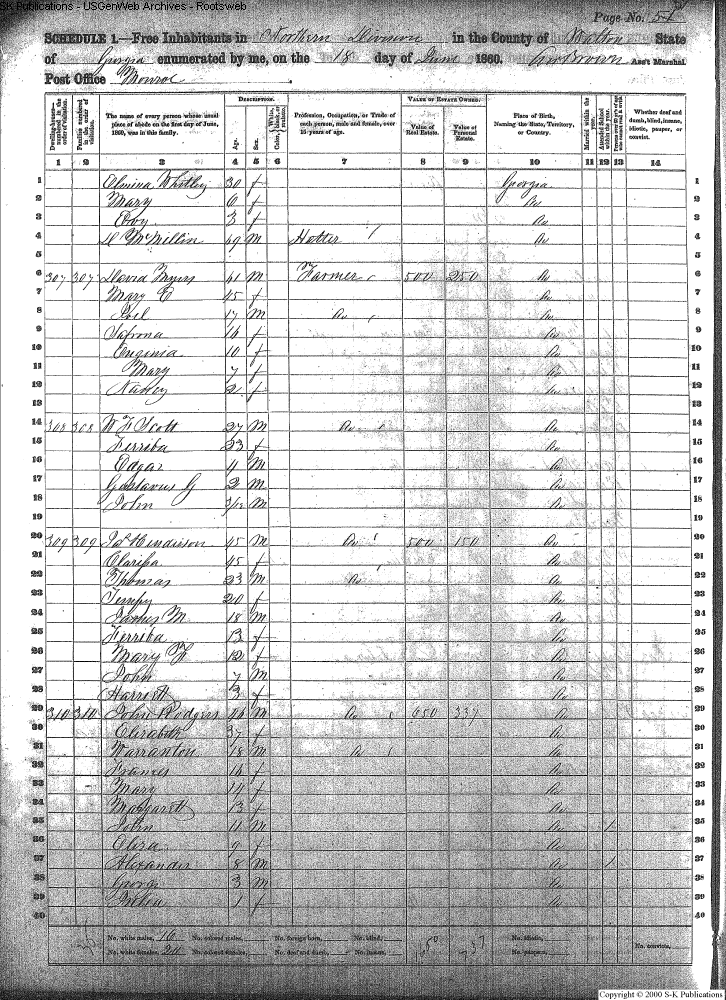 S-K Publications - USGenWeb Archives - Rootsweb
Page No. 54
SCHEDULE 1.—Free Inhabitants in Northern Division in the County of Walton State
of Georgia enumerated by me, on the 18 day of June 1860. Brown Ass't Marshal.
Post Office Monroe
Dwelling-houses—numbered in the order of visitation.
Families numbered in the order of visitation.
The name of every person whose usual place of abode on the first day of June, 1860, was in this family.
DESCRIPTION.
Age.
Sex.
Color, White, black, or mulatto.
Profession, Occupation, or Trade of each person, male and female, over 15 years of age.
VALUE OF ESTATE OWNED.
Value of Real Estate.
Value of Personal Estate.
Place of Birth, Naming the State, Territory, or Country.
Married within the year.
Attended School within the year.
Whether deaf and dumb, blind, insane, idiotic, pauper, or convict.
1 2 3 4 5 6 7 8 9 10 11 12 13 14
1 Elmina Whitley 30 f Georgia 1
2 Mary 6 f Do 2
3 3 f Do 3
4 McMillin 49 M Hatter Do 4
5 5
6 307 307 David Myers 41 M Farmer 500 250 Do 6
7 Mary E 45 f Do 7
8 Joel 17 M Do Do 8
9 Safrona 14 f Do 9
10 Eugenia 10 f Do 10
11 Mary 7 f Do 11
12 Nancy 2 f Do 12
13 13
14 308 308 W F Scott 27 M Do Do 14
15 Ferriba 23 f Do 15
16 Edgar 4 M Do 16
17 Gustavus G 2 M Do 17
18 John 3/12 M Do 18
19 19
20 309 309 Jas Henderson 45 M Do 500 150 Do 20
21 Clarisa 45 f Do 21
22 Thomas 23 M Do Do 22
23 Tempy 20 f Do 23
24 James M 18 M Do 24
25 Ferriba 13 f Do 25
26 Mary F 12 f Do 26
27 John 7 M Do 27
28 Harriett 3 f Do 28
29 310 310 John Rodgers 46 M Do 650 337 Do 29
30 Elizabeth 37 f Do 30
31 Warranton 18 M Do Do 31
32 Frances 16 f Do 32
33 Mary 14 f Do 33
34 Margarett 13 f Do 34
35 John 11 M Do 1 35
36 Eliza 9 f Do 36
37 Alexander 8 M Do 1 37
38 George 3 M Do 38
39 1 f Do 39
40 40
No. white males, 16 No. colored males, No. foreign born, No. blind, 1650 737 No. idiotic,
No. white females, 20 No. colored females, No. deaf and dumb, No. insane, No. paupers, No. convicts,
Copyright © 2000 S-K Publications